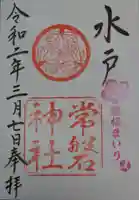 水戸
常磐
神社
令和二年三月七日奉拝